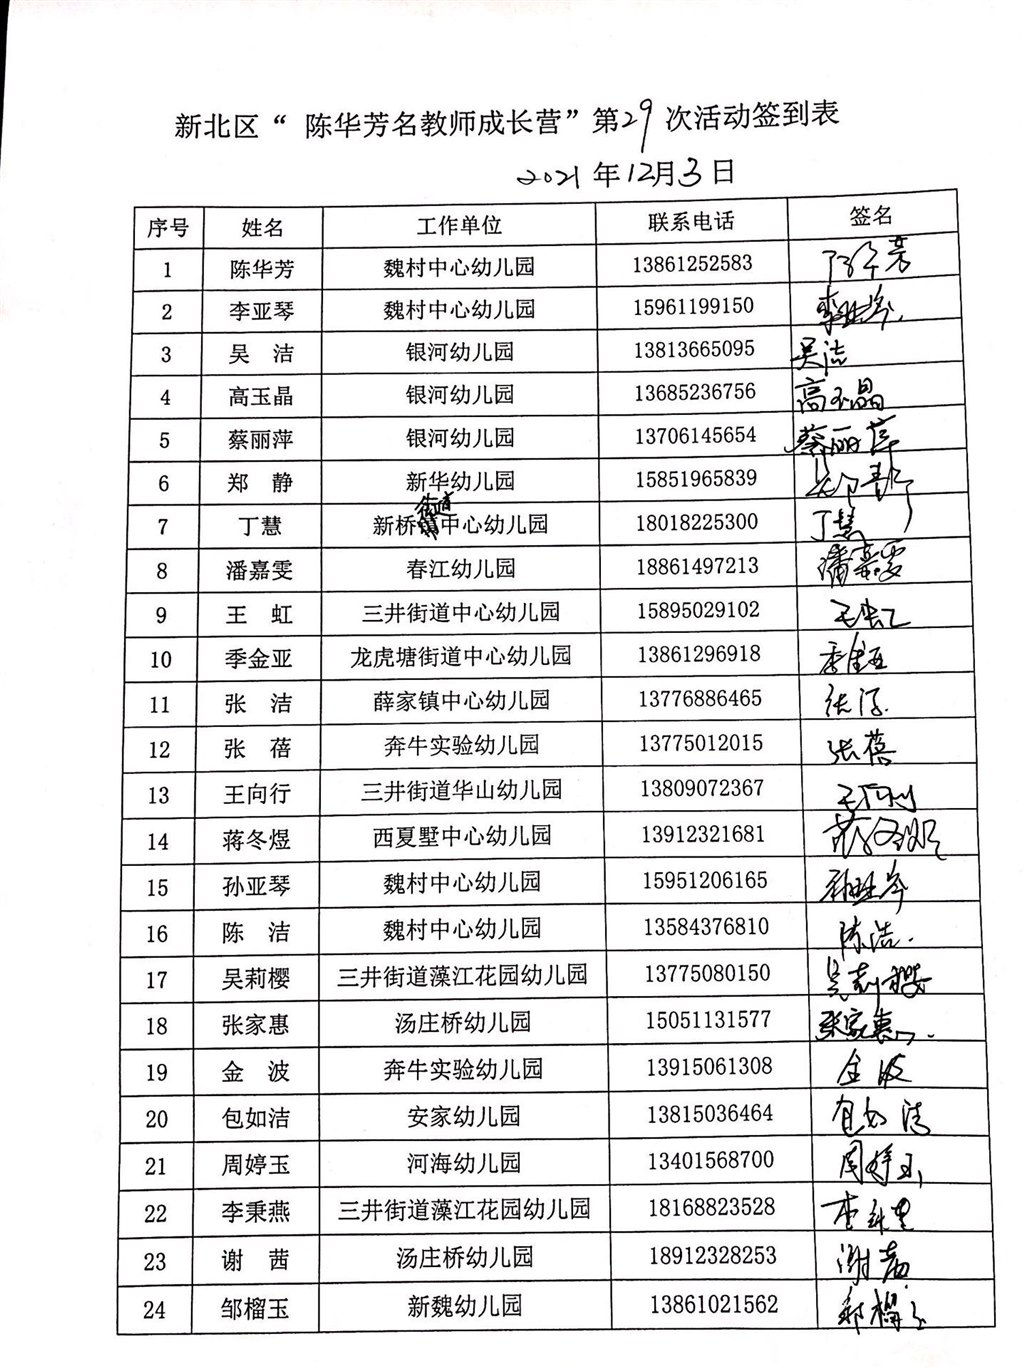 新北区“ 陈华芳名教师成长营”第29次活动签到表
2021年12月3日
序号 姓名 工作单位 联系电话 签名
1 陈华芳 魏村中心幼儿园 13861252583 陈华芳
2 李亚琴 魏村中心幼儿园 15961199150 李亚琴
3 吴 洁 银河幼儿园 13813665095 吴洁
4 高玉晶 银河幼儿园 13685236756 高玉晶
5 蔡丽萍 银河幼儿园 13706145654 蔡丽萍
6 郑 静 新华幼儿园 15851965839 郑静
7 丁慧 新桥街道中心幼儿园 18018225300 丁慧
8 潘嘉雯 春江幼儿园 18861497213 潘嘉雯
9 王 虹 三井街道中心幼儿园 15895029102 王虹
10 季金亚 龙虎塘街道中心幼儿园 13861296918 季金亚
11 张 洁 薛家镇中心幼儿园 13776886465 张洁
12 张 蓓 奔牛实验幼儿园 13775012015 张蓓
13 王向行 三井街道华山幼儿园 13809072367 王向行
14 蒋冬煜 西夏墅中心幼儿园 13912321681 蒋冬煜
15 孙亚琴 魏村中心幼儿园 15951206165 孙亚琴
16 陈 洁 魏村中心幼儿园 13584376810 陈洁
17 吴莉樱 三井街道藻江花园幼儿园 13775080150 吴莉樱
18 张家惠 汤庄桥幼儿园 15051131577 张家惠
19 金 波 奔牛实验幼儿园 13915061308 金波
20 包如洁 安家幼儿园 13815036464 包如洁
21 周婷玉 河海幼儿园 13401568700 周婷玉
22 李秉燕 三井街道藻江花园幼儿园 18168823528 李秉燕
23 谢 茜 汤庄桥幼儿园 18912328253 谢茜
24 邹榴玉 新魏幼儿园 13861021562 邹榴玉